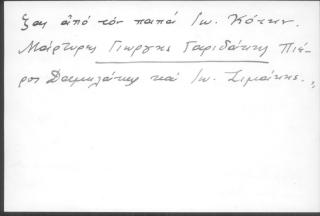 ξας ἀπό τόν παπά Ἰω. Κότσην.
Μάρτυρες Γιώργης Γαριδάκης Πιέ-
ρος Δαμιλάκης καί Ἰω. Σιμάκης.